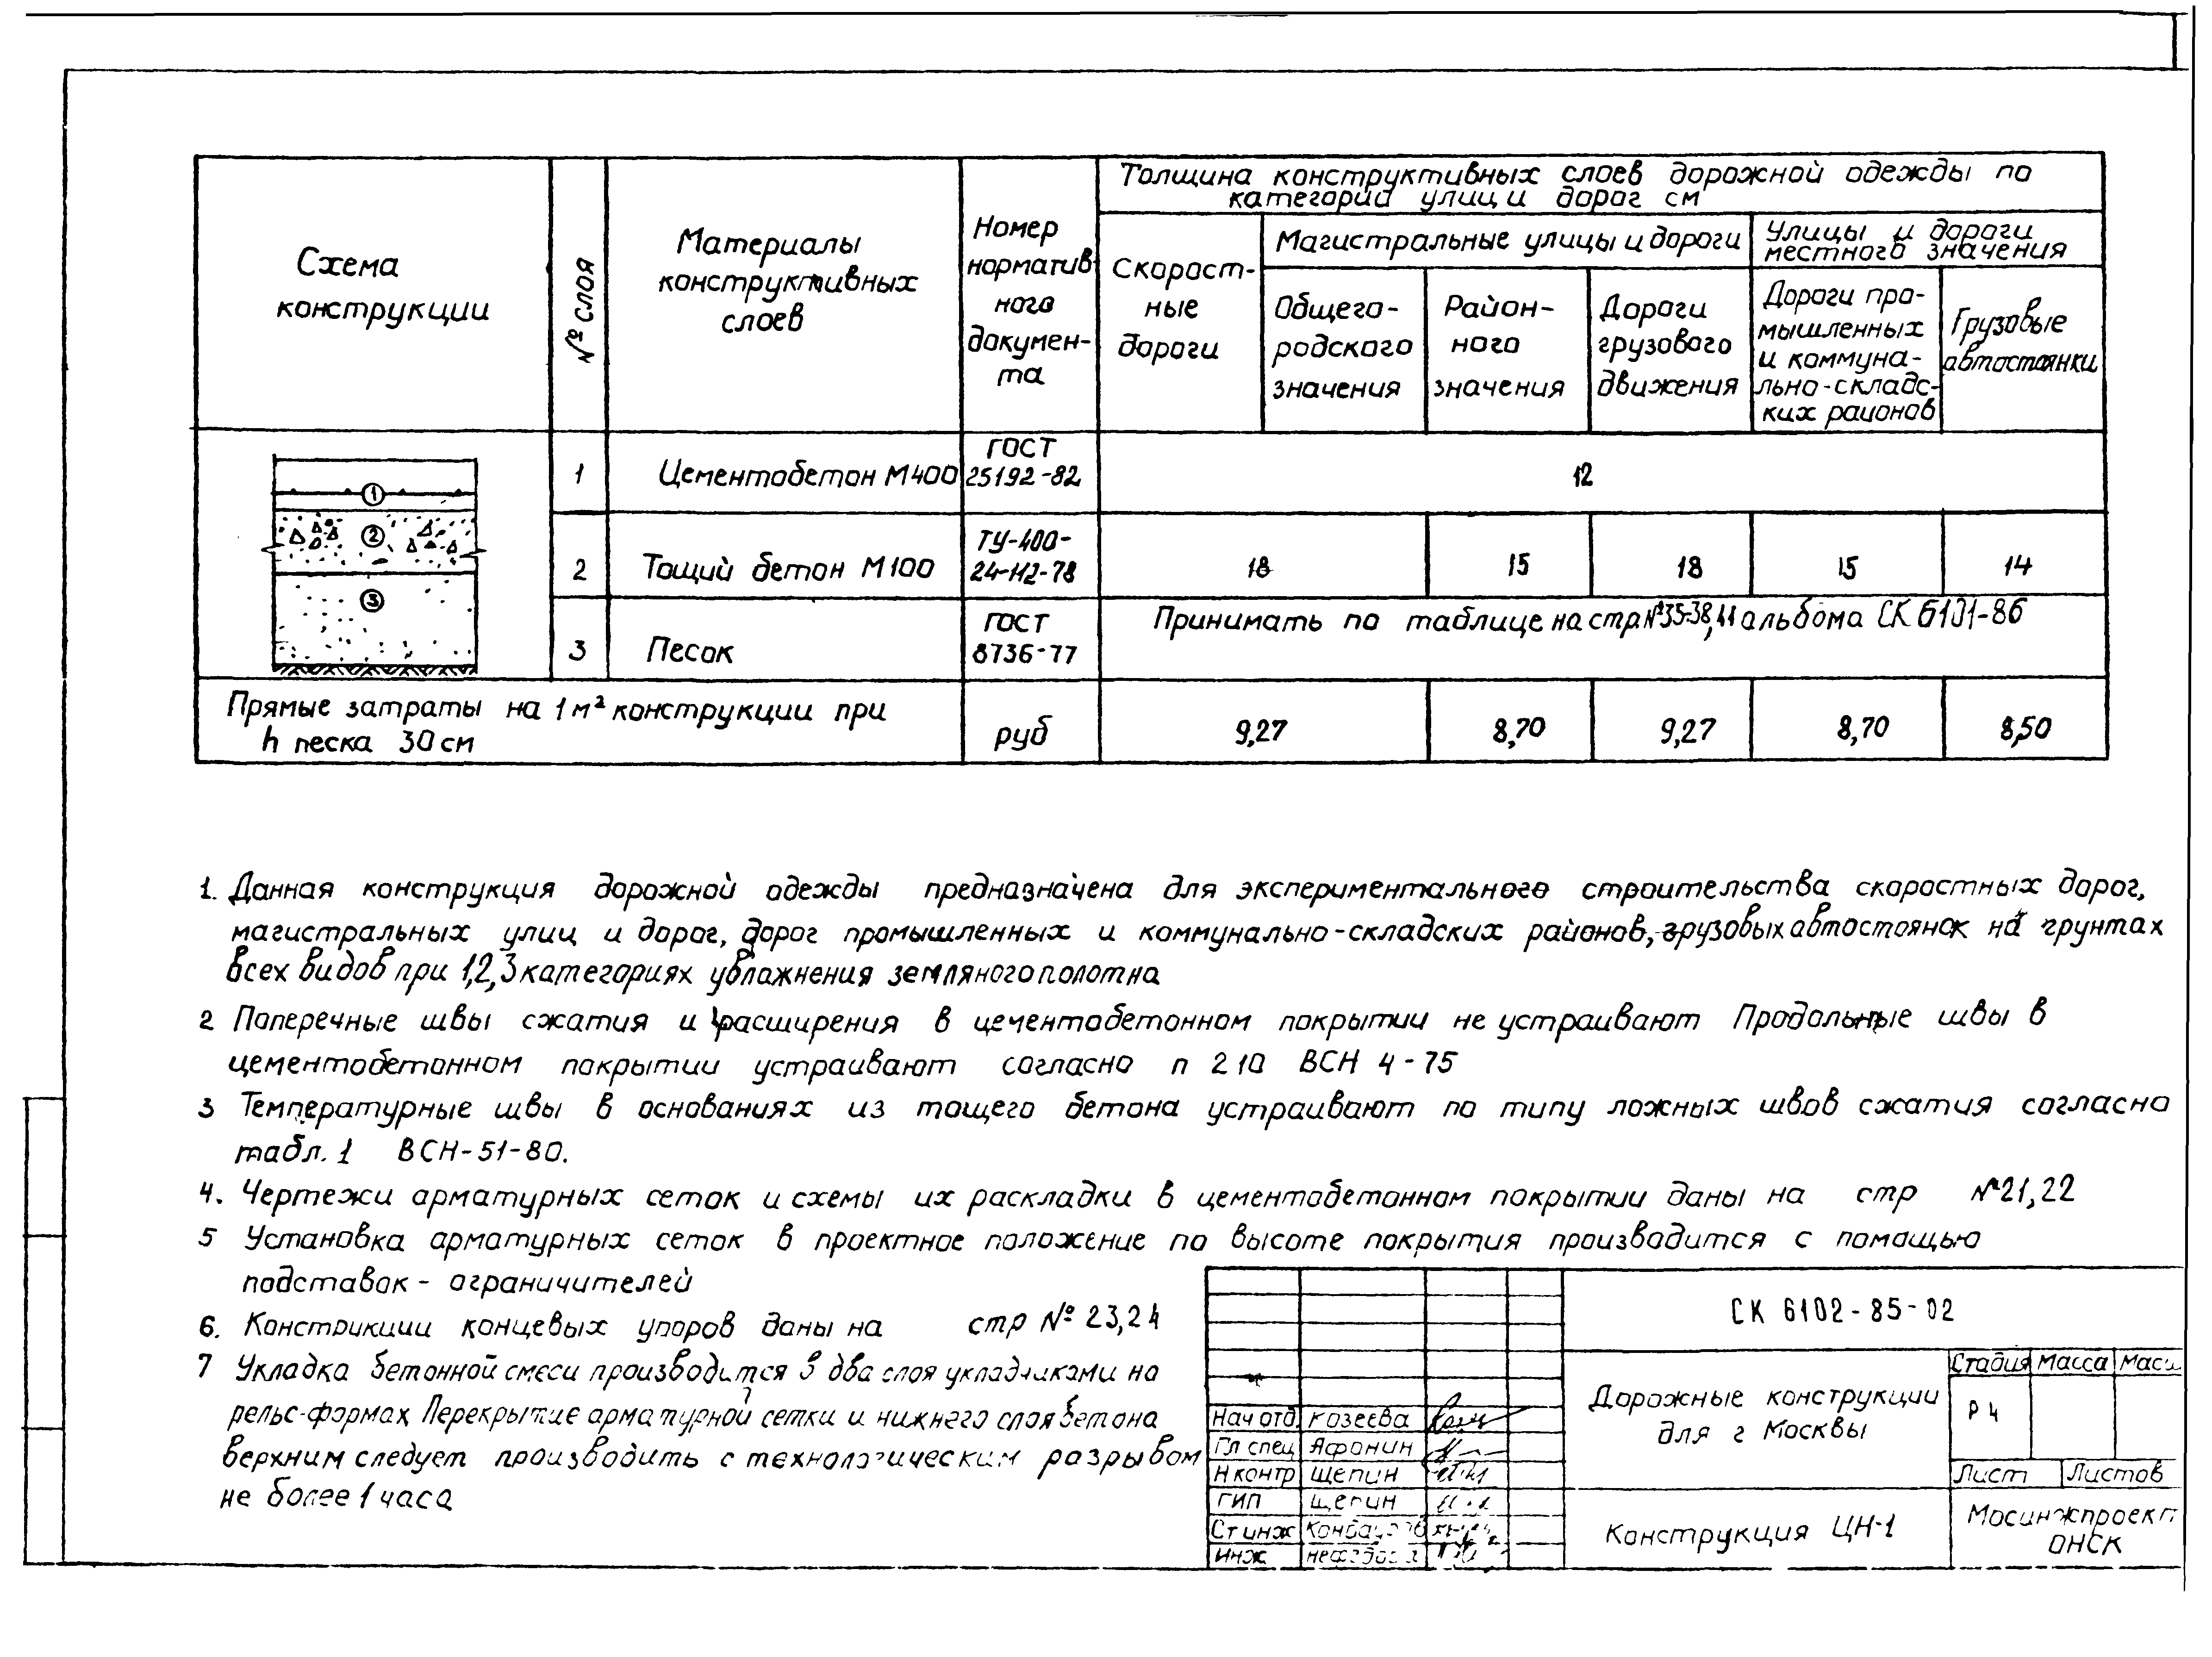 Схема
конструкции
№ слоя
Материалы
конструктивных
слоев
Номер
норматив-
ного
докумен-
та
Толщина конструктивных слоев дорожной одежды по
категории улиц и дорог см
Скорост-
ные
дороги
Магистральные улицы и дороги
Улицы и дороги
местного значения
Общего-
родского
значения
Район-
ного
значения
Дороги
грузового
движения
Дороги про-
мышленных
и коммуна-
льно-складс-
ких районов
Грузовые
автостоянки
1
2
3
1 Цементобетон М400
ГОСТ
25192-82
12
2 Тощий бетон М100
ТУ-400-
24-112-78
18 15 18 15 14
3 Песок
ГОСТ
8736-77
Принимать по таблице на стр. №35-38, 41 альбома СК 6101-86
Прямые затраты на 1 м² конструкции при
h песка 30 см
руб
9,27 8,70 9,27 8,70 8,50
1. Данная конструкция дорожной одежды предназначена для экспериментального строительства скоростных дорог,
магистральных улиц и дорог, дорог промышленных и коммунально-складских районов, грузовых автостоянок на грунтах
всех видов при 1,2,3 категориях увлажнения земляного полотна
2 Поперечные швы сжатия и расширения в цементобетонном покрытии не устраивают Продольные швы в
цементобетонном покрытии устраивают согласно п 2 10 ВСН 4-75
3 Температурные швы в основаниях из тощего бетона устраивают по типу ложных швов сжатия согласно
табл. 1 ВСН-51-80.
4. Чертежи арматурных сеток и схемы их раскладки в цементобетонном покрытии даны на стр №21,22
5 Установка арматурных сеток в проектное положение по высоте покрытия производится с помощью
подставок - ограничителей
6. Конструкции концевых упоров даны на стр № 23,24
7 Укладка бетонной смеси производится в два слоя укладчиками на
рельс-формах Перекрытие арматурной сетки и нижнего слоя бетона
верхним следует производить с технологическим разрывом
не более 1 часа
СК 6102-85-02
Дорожные конструкции
для г Москвы
Стадия Масса Масш
Р 4
Лист Листов
Нач отд Козеева
Гл спец Афонин
Н контр Щепин
ГИП Щепин
Ст инж
Инж
Конструкция ЦН-1
Мосинжпроект
ОНСК